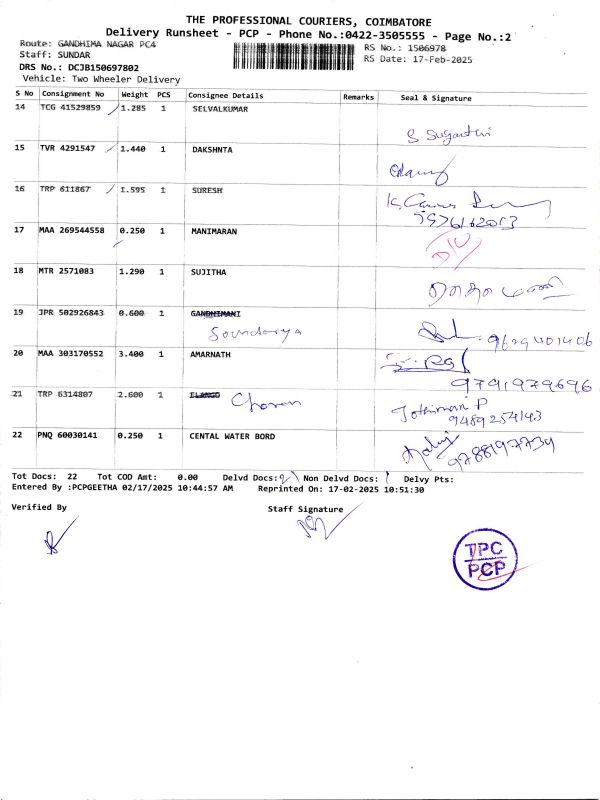 THE PROFESSIONAL COURIERS, COIMBATORE
Delivery Runsheet - PCP - Phone No.:0422-3505555 - Page No.:2
Route: GANDHIMA NAGAR PC4 RS No.: 1506978
Staff: SUNDAR RS Date: 17-Feb-2025
DRS No.: DCJB150697802
Vehicle: Two Wheeler Delivery
S No Consignment No Weight PCS Consignee Details Remarks Seal & Signature
14 TCG 41529859 1.285 1 SELVALKUMAR
S. Suganthi
15 TVR 4291547 1.440 1 DAKSHNTA
16 TRP 611867 1.595 1 SURESH
17 MAA 269544558 0.250 1 MANIMARAN
D/C
18 MTR 2571083 1.290 1 SUJITHA
19 JPR 502926843 0.600 1 GANDHIMANI
Soundarya 9629401406
20 MAA 303170552 3.400 1 AMARNATH
9791979696
21 TRP 6314807 2.600 1 ELANGO Charan
Jothimani P
9489254143
22 PNQ 60030141 0.250 1 CENTAL WATER BORD
9788197739
Tot Docs: 22 Tot COD Amt: 0.00 Delvd Docs: 21 Non Delvd Docs: 1 Delvy Pts:
Entered By :PCPGEETHA 02/17/2025 10:44:57 AM Reprinted On: 17-02-2025 10:51:30
Verified By Staff Signature
TPC
PCP